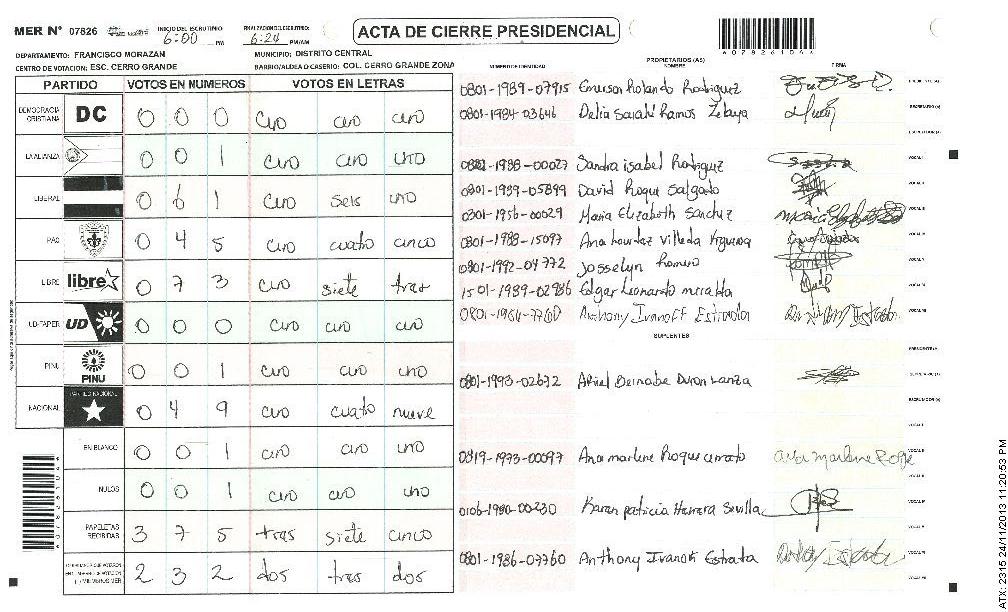 MER N° 07826 INICIO DEL ESCRUTINIO 6:00 PM FINALIZACION DEL ESCRUTINIO: 6:24 PM/AM ACTA DE CIERRE PRESIDENCIAL
DEPARTAMENTO: FRANCISCO MORAZAN MUNICIPIO: DISTRITO CENTRAL
CENTRO DE VOTACION: ESC. CERRO GRANDE BARRIO/ALDEA O CASERIO: COL. CERRO GRANDE ZONA
PARTIDO VOTOS EN NUMEROS VOTOS EN LETRAS
DEMOCRACIA CRISTIANA DC 0 0 0 cero cero cero
LA ALIANZA 0 0 1 cero cero uno
LIBERAL 0 6 1 cero seis uno
PAC 0 4 5 cero cuatro cinco
LIBRE libre 0 7 3 cero siete tres
UD-FAPER UD 0 0 0 cero cero cero
PINU PINU 0 0 1 cero cero uno
NACIONAL PARTIDO NACIONAL 0 4 9 cero cuatro nueve
EN BLANCO 0 0 1 cero cero uno
NULOS 0 0 1 cero cero uno
PAPELETAS RECIBIDAS 3 7 5 tres siete cinco
2 3 2 dos tres dos
NUMERO DE IDENTIDAD PROPIETARIOS (AS) NOMBRE FIRMA
0801-1989-07915 Emerson Rolando Rodriguez
0801-1984-03646 Delia Sarahi Ramos Zelaya
-1988-00027 Sandra isabel Rodriguez
0801-1989-05899 David Roque Salgado
0801-1956-00029 Maria Elizabeth Sanchez
0801-1988-15097 Ana Lourdez Villeda
0801-1992-04772 Josselyn Romero
1501-1989-02986 Edgar Leonardo
0801-1964-7760 Anthony Ivanoff Estrada
SUPLENTES
0801-1993-02672 Ariel Bernabe Duron Lanza
0819-1973-00097 Ana marlene Roque
0106-1980-00230 Karen patricia Herrera Sevilla
0801-1986-07760 Anthony Ivanoff Estrada
ATX: 2315 24/11/2013 11:20:53 PM